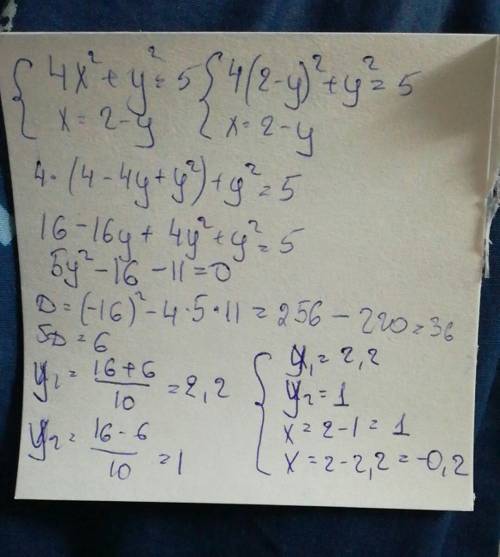 { 4x² + y² = 5 { 4(2-y)² + y² = 5
x = 2-y x = 2-y
4·(4-4y+y²)+y² = 5
16-16y+4y²+y² = 5
5y²-16-11=0
D = (-16)²-4·5·11 = 256-220=36
√D = 6
y₁ = (16+6)/10 = 2,2
y₂ = (16-6)/10 = 1
{ y₁ = 2,2
y₂ = 1
x = 2-1 = 1
x = 2-2,2 = -0,2